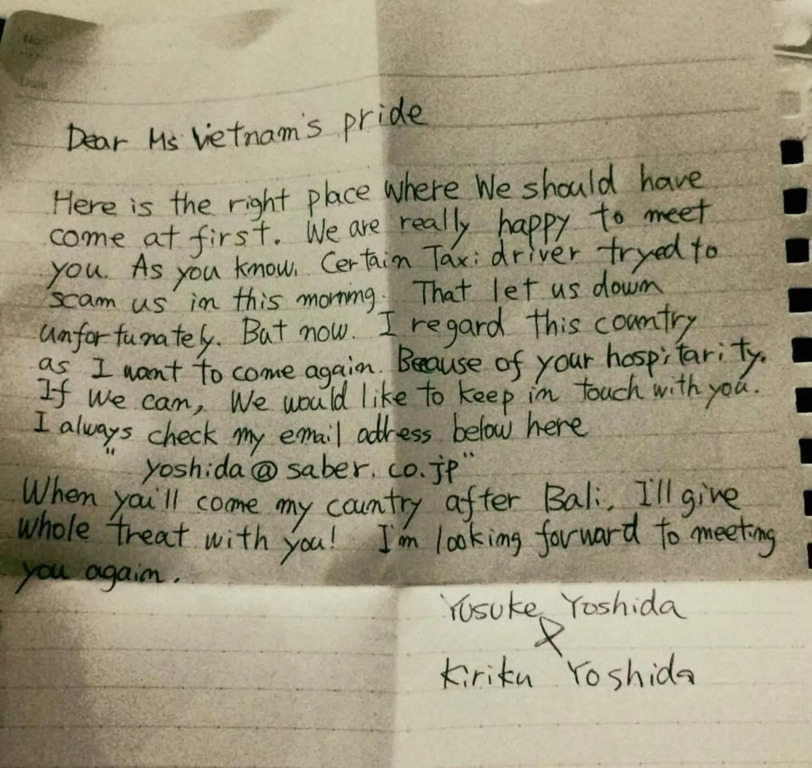 Dear Ms Vietnam's pride
Here is the right place where We should have
come at first. We are really happy to meet
you. As you know. Certain Taxi driver tryed to
scam us in this morning. That let us down
unfortunately. But now. I regard this country
as I want to come again. Beause of your hospitarity.
If We can, We would like to keep in touch with you.
I always check my email address below here
"yoshida@saber.co.jp"
When you'll come my country after Bali, I'll give
whole treat with you! I'm looking forward to meeting
you again.
Yusuke Yoshida
&
Kiriku Yoshida